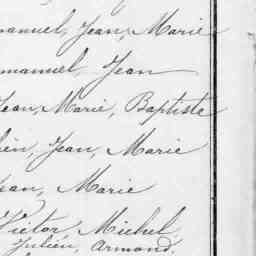 manuel, Jean, Marie
manuel, Jean
Jean, Marie, Baptiste
Jean, Marie
Jean, Marie
Victor Michel
Julien, Armond.